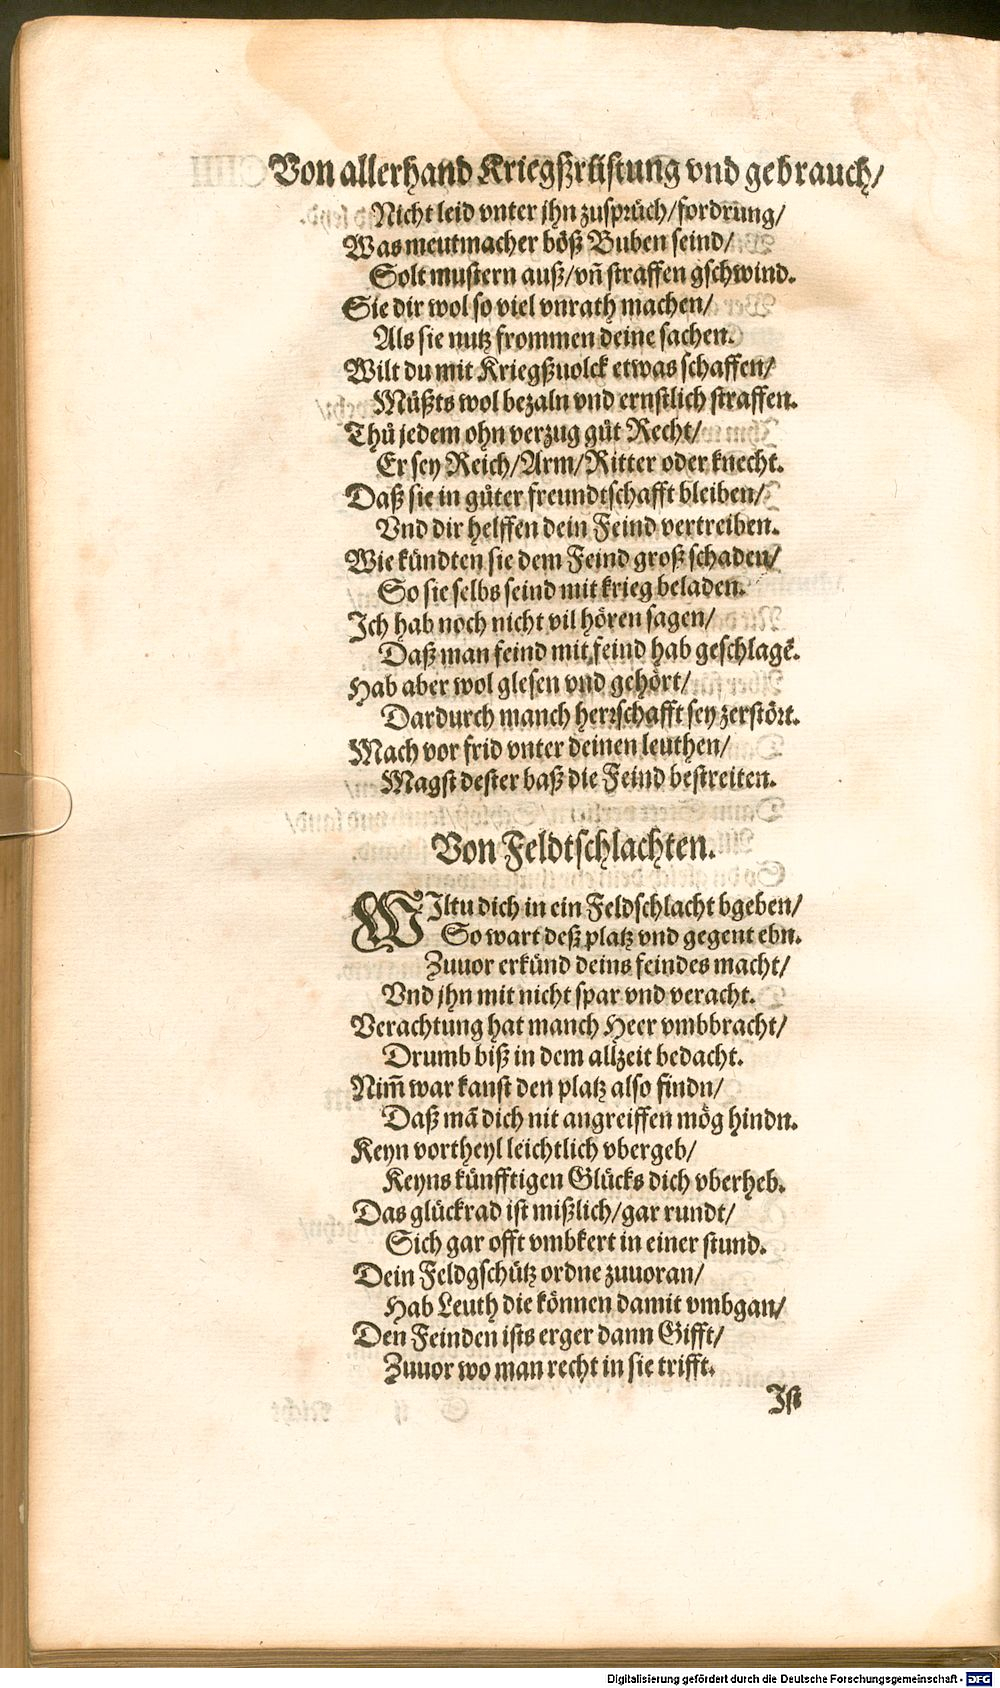 Von allerhand Kriegßrüstung vnd gebrauch/
Nicht leid vnter jhn zusprüch/fordrung/
Was meutmacher böß Buben seind/
Solt mustern auß/vñ straffen gschwind.
Sie dir wol so viel vnrath machen/
Als sie nutz frommen deine sachen.
Wilt du mit Kriegßuolck etwas schaffen/
Müßts wol bezaln vnd ernstlich straffen.
Thů jedem ohn verzug gůt Recht/
Er sey Reich/Arm/Ritter oder knecht.
Daß sie in gůter freundtschafft bleiben/
Vnd dir helffen dein Feind vertreiben.
Wie kündten sie dem Feind groß schaden/
So sie selbs seind mit krieg beladen.
Ich hab noch nicht vil hören sagen/
Daß man feind mit feind hab geschlagē.
Hab aber wol glesen vnd gehört/
Dardurch manch herrschafft sey zerstört.
Mach vor frid vnter deinen leuthen/
Magst dester baß die Feind bestreiten.
Von Feldtschlachten.
WIltu dich in ein Feldschlacht bgeben/
So wart deß platz vnd gegent ebn.
Zuuor erkünd deins feindes macht/
Vnd jhn mit nicht spar vnd veracht.
Verachtung hat manch Heer vmbbracht/
Drumb biß in dem allzeit bedacht.
Nim̃ war kanst den platz also findn/
Daß mā dich nit angreiffen mög hindn.
Keyn vortheyl leichtlich vbergeb/
Keyns künfftigen Glücks dich vberheb.
Das glückrad ist mißlich/gar rundt/
Sich gar offt vmbkert in einer stund.
Dein Feldgschütz ordne zuuoran/
Hab Leuth die können damit vmbgan/
Den Feinden ists erger dann Gifft/
Zuuor wo man recht in sie trifft.
Ist
Digitalisierung gefördert durch die Deutsche Forschungsgemeinschaft - DFG